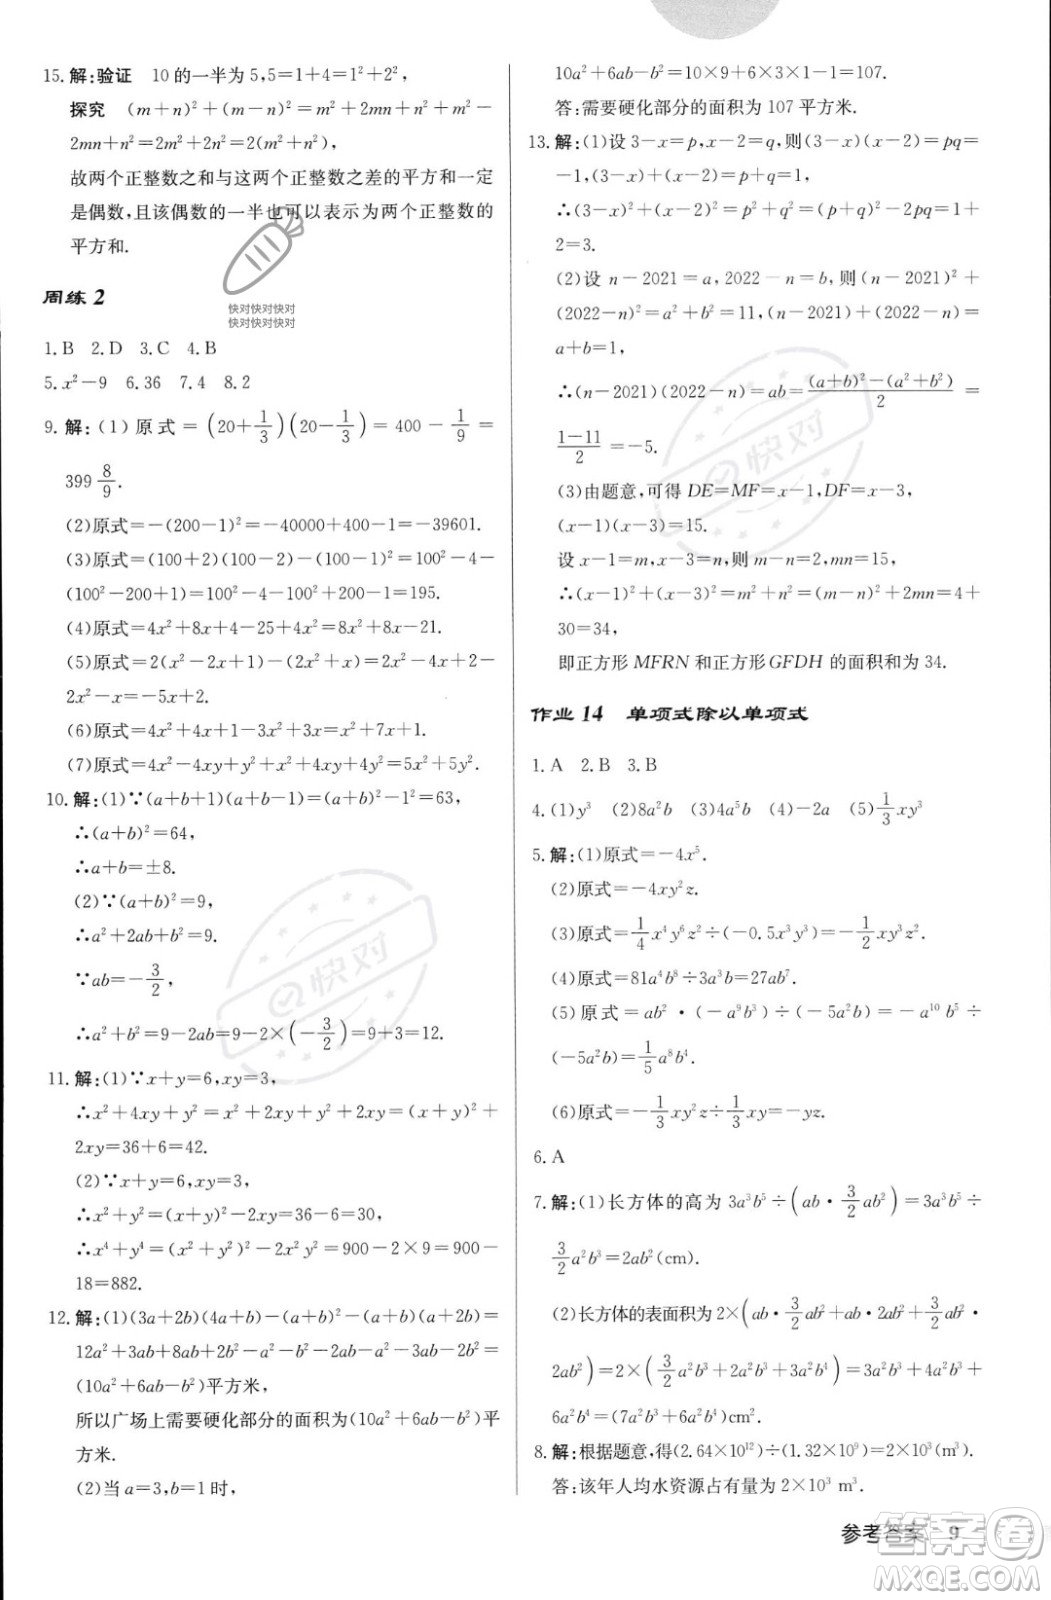 15.解:验证　10的一半为5,5=1+4=1²+2²,
探究　(m+n)²+(m-n)²=m²+2mn+n²+m²-
2mn+n²=2m²+2n²=2(m²+n²),
故两个正整数之和与这两个正整数之差的平方和一定
是偶数,且该偶数的一半也可以表示为两个正整数的
平方和.
快对快对快对
快对快对快对
周练 2
1.B　2.D　3.C　4.B
5.x²-9　6.36　7.4　8.2
9.解:(1)原式=(20+1/3)(20-1/3)=400-1/9=
399 8/9.
(2)原式=-(200-1)²=-40000+400-1=-39601.
(3)原式=(100+2)(100-2)-(100-1)²=100²-4-
(100²-200+1)=100²-4-100²+200-1=195.
(4)原式=4x²+8x+4-25+4x²=8x²+8x-21.
(5)原式=2(x²-2x+1)-(2x²+x)=2x²-4x+2-
2x²-x=-5x+2.
(6)原式=4x²+4x+1-3x²+3x=x²+7x+1.
(7)原式=4x²-4xy+y²+x²+4xy+4y²=5x²+5y².
10.解:(1)∵(a+b+1)(a+b-1)=(a+b)²-1²=63,
∴(a+b)²=64,
∴a+b=±8.
(2)∵(a+b)²=9,
∴a²+2ab+b²=9.
∵ab=-3/2,
∴a²+b²=9-2ab=9-2×(-3/2)=9+3=12.
11.解:(1)∵x+y=6,xy=3,
∴x²+4xy+y²=x²+2xy+y²+2xy=(x+y)²+
2xy=36+6=42.
(2)∵x+y=6,xy=3,
∴x²+y²=(x+y)²-2xy=36-6=30,
∴x⁴+y⁴=(x²+y²)²-2x²y²=900-2×9=900-
18=882.
12.解:(1)(3a+2b)(4a+b)-(a+b)²-(a+b)(a+2b)=
12a²+3ab+8ab+2b²-a²-2ab-b²-a²-3ab-2b²=
(10a²+6ab-b²)平方米,
所以广场上需要硬化部分的面积为(10a²+6ab-b²)平
方米.
(2)当a=3,b=1时,
10a²+6ab-b²=10×9+6×3×1-1=107.
答:需要硬化部分的面积为107平方米.
13.解:(1)设3-x=p,x-2=q,则(3-x)(x-2)=pq=
-1,(3-x)+(x-2)=p+q=1,
∴(3-x)²+(x-2)²=p²+q²=(p+q)²-2pq=1+
2=3.
(2)设n-2021=a,2022-n=b,则(n-2021)²+
(2022-n)²=a²+b²=11,(n-2021)+(2022-n)=
a+b=1,
∴(n-2021)(2022-n)=ab=((a+b)²-(a²+b²))/2=
(1-11)/2=-5.
(3)由题意,可得DE=MF=x-1,DF=x-3,
(x-1)(x-3)=15.
设x-1=m,x-3=n,则m-n=2,mn=15,
∴(x-1)²+(x-3)²=m²+n²=(m-n)²+2mn=4+
30=34,
即正方形MFRN和正方形GFDH的面积和为34.
作业 14　单项式除以单项式
1.A　2.B　3.B
4.(1)y³　(2)8a²b　(3)4a⁵b　(4)-2a　(5)1/3xy³
5.解:(1)原式=-4x⁵.
(2)原式=-4xy²z.
(3)原式=1/4x⁴y⁶z²÷(-0.5x³y³)=-1/2xy³z².
(4)原式=81a⁴b⁸÷3a³b=27ab⁷.
(5)原式=ab²·(-a⁹b³)÷(-5a²b)=-a¹⁰b⁵÷
(-5a²b)=1/5a⁸b⁴.
(6)原式=-1/3xy²z÷1/3xy=-yz.
6.A
7.解:(1)长方体的高为3a³b⁵÷(ab·3/2ab²)=3a³b⁵÷
3/2a²b³=2ab²(cm).
(2)长方体的表面积为2×(ab·3/2ab²+ab·2ab²+3/2ab²·
2ab²)=2×(3/2a²b³+2a²b³+3a²b⁴)=3a²b³+4a²b³+
6a²b⁴=(7a²b³+6a²b⁴)cm².
8.解:根据题意,得(2.64×10¹²)÷(1.32×10⁹)=2×10³(m³).
答:该年人均水资源占有量为2×10³ m³.
参考答案　9
快对
快对
答案卷
MXQE.COM